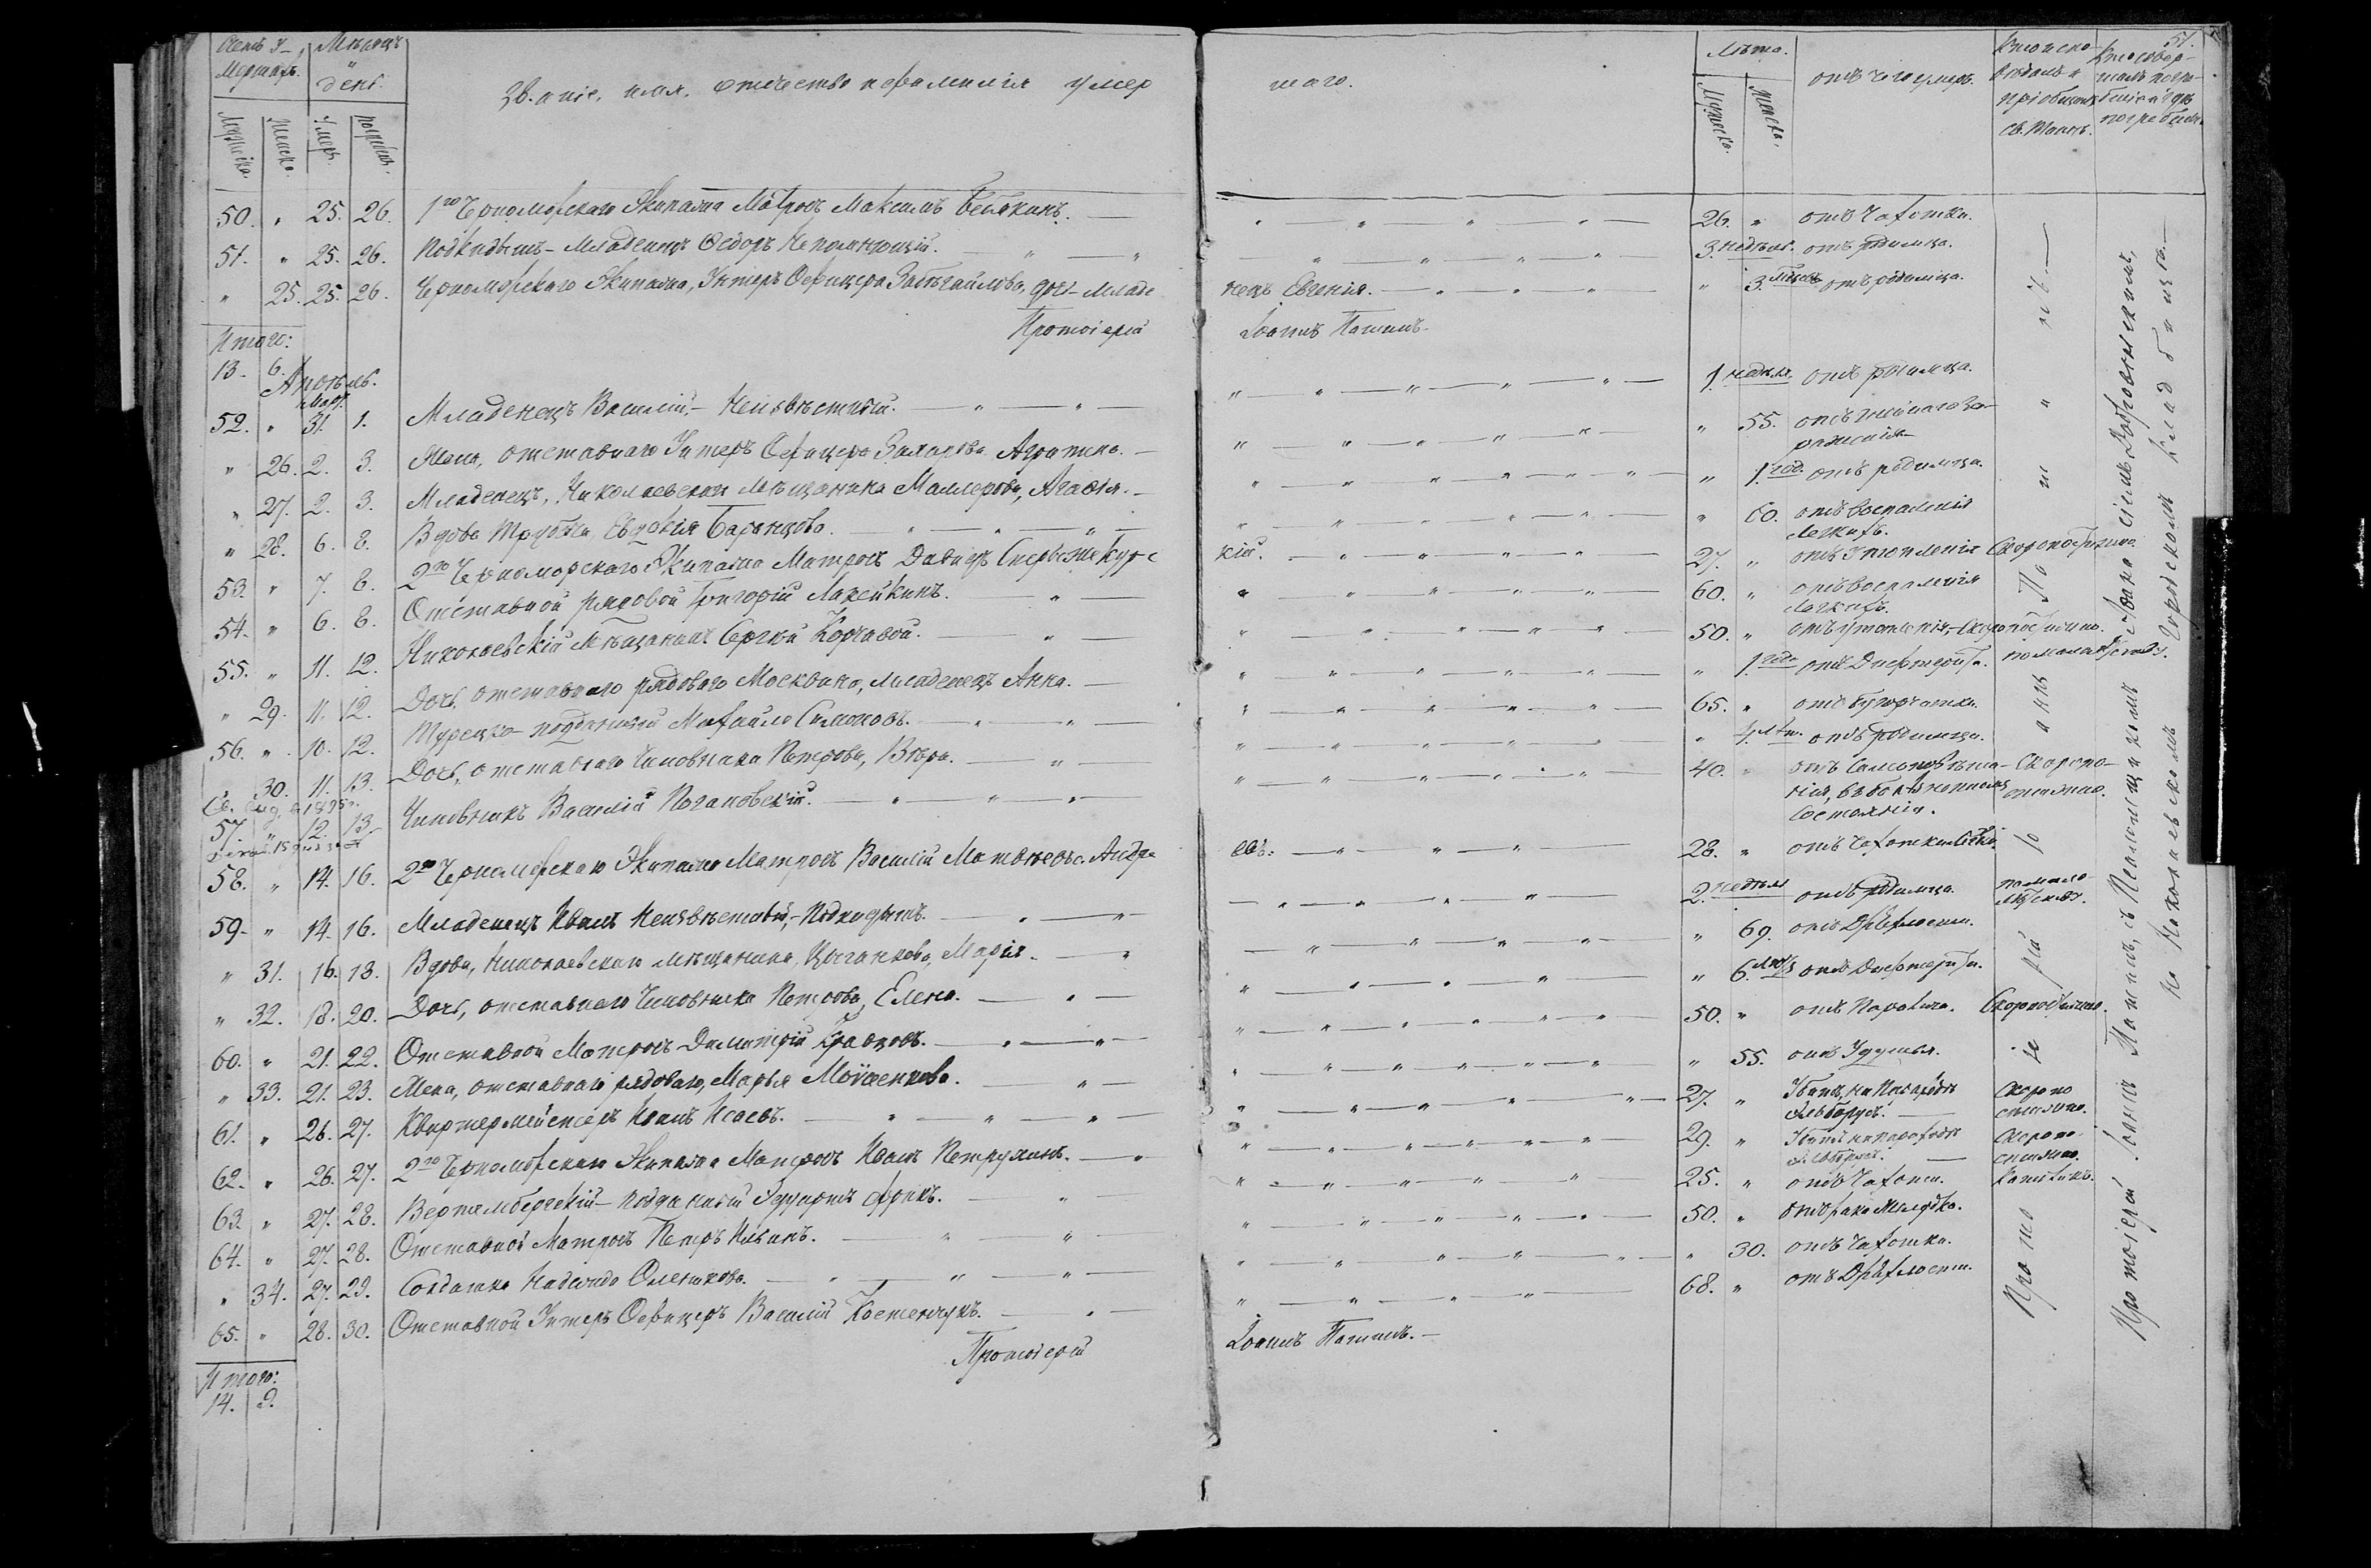 Счетъ у- мершихъ. Мѣсяцъ и день. Звание, имя, отчество и фамилія умер шаго. Лѣта. отъ чего умеръ. Кто испо- вѣдалъ и пріобщалъ св. Таинъ. Кто совер- шалъ погре- беніе и гдѣ погребены. 51.
Мужеска. Женска. Умеръ. погребенъ. Мужеска. Женска.
50. " 25. 26. 1го Черноморскаго Экипажа Матросъ Максимъ 26. " отъ Чахотки.
51. " 25. 26. Подкидышъ - Младенецъ Ѳедоръ Непомнющій. 3. недѣль. отъ родимца.
" 25. 25. 26. Черноморскаго Экипажа, Унтеръ Офицера дочь - Младе нецъ Евгенія. " 3. отъ родимца.
Протоіерей Іоаннъ Патинъ.
Итого:
13. 6.
Апрѣль.
52. " Мар. 31. 1. Младенецъ Василій, - Неизвѣстный. 1. недѣля. отъ родимца.
" 26. 2. 3. Жена, отставнаго Унтеръ Офицера Захарова Агрипина. " 55. отъ за- раженія
" 27. 2. 3. Младенецъ, Николаевскаго мѣщанина Агафія. " 1. год. отъ родимца.
" 28. 6. 8. Вдова Евдокія " 60. отъ воспаленія Легкихъ.
53. " 7. 8. 2го Черноморскаго Экипажа Матросъ Давидъ кій. 27. " отъ Утопленія Скоропостижно.
54. " 6. 8. Отставной рядовой Григорій Лахейкинъ. 60. " отъ воспаленія Легкихъ.
55. " 11. 12. Николаевскій Мѣщанинъ Сергѣй Корчавой. 50. " Скоропостижно.
" 29. 11. 12. Дочь, отставнаго рядоваго Москвина, младенецъ Анна. " 1. года отъ Дифтерита. по малолѣтству.
56. " 10. 12. Турецко-подданный Михаилъ Симоновъ. 65. " отъ бугорчатки.
" 30. 11. 13. Дочь, отставнаго Чиновника Петрова, Вѣра. " 4. лѣт. отъ родимца.
57. " 12. 13. Чиновникъ Василій 40. " отъ Самоповѣше- нія, въ состояніи. Скоропо- стижно.
58. " 14. 16. 2го Черноморскаго Экипажа Матросъ Василій Матвѣевъ 28. " отъ Чахотки
59. " 14. 16. Младенецъ Иванъ Неизвѣстный, - Подкидышъ. 2. недѣли отъ родимца. по мало- лѣтству.
" 31. 16. 18. Вдова, Николаевскаго мѣщанина, Цыганкова, Марія. " 69. отъ Дряхлости.
" 32. 18. 20. Дочь, отставнаго Чиновника Петрова, Елена. " 6. лѣтъ отъ Дифтерита.
60. " 21. 22. Отставной Матросъ Димитрій Кравцовъ. 50. " отъ Паралича. Скоропостижно.
" 33. 21. 23. Жена, отставнаго рядоваго, Марья " 55. отъ Удушья.
61. " 26. 27. Квартермейстеръ Иванъ Исаевъ. 27. " Убитъ, на Пароходѣ Эльборусъ. Скоропо стижно.
62. " 26. 27. 2го Черноморскаго Экипажа Матросъ Иванъ Петрухинъ. 29. " Убитъ на пароходѣ Эльборусъ. Скоропо- стижно.
63. " 27. 28. Вертембергскій - подданный Эдуардъ 25. " отъ Чахотк.
64. " 27. 28. Отставной Матросъ Петръ Ильинъ. 50. " отъ рака Желудка.
" 34. 27. 29. Солдатка Надежда Оленикова. " 30. отъ Чахотки.
65. " 28. 30. Отставной Унтеръ Офицеръ Василій Костенчукъ. 68. " отъ Дряхлости.
Протоіерей Іоаннъ Патинъ.
Итого:
14. 9.
Протоіерей Іоаннъ Патинъ
Протоіерей Іоаннъ Патинъ, съ Псаломщикомъ Доброволскимъ,
На Николаевскомъ Городскомъ Кладбищѣ.